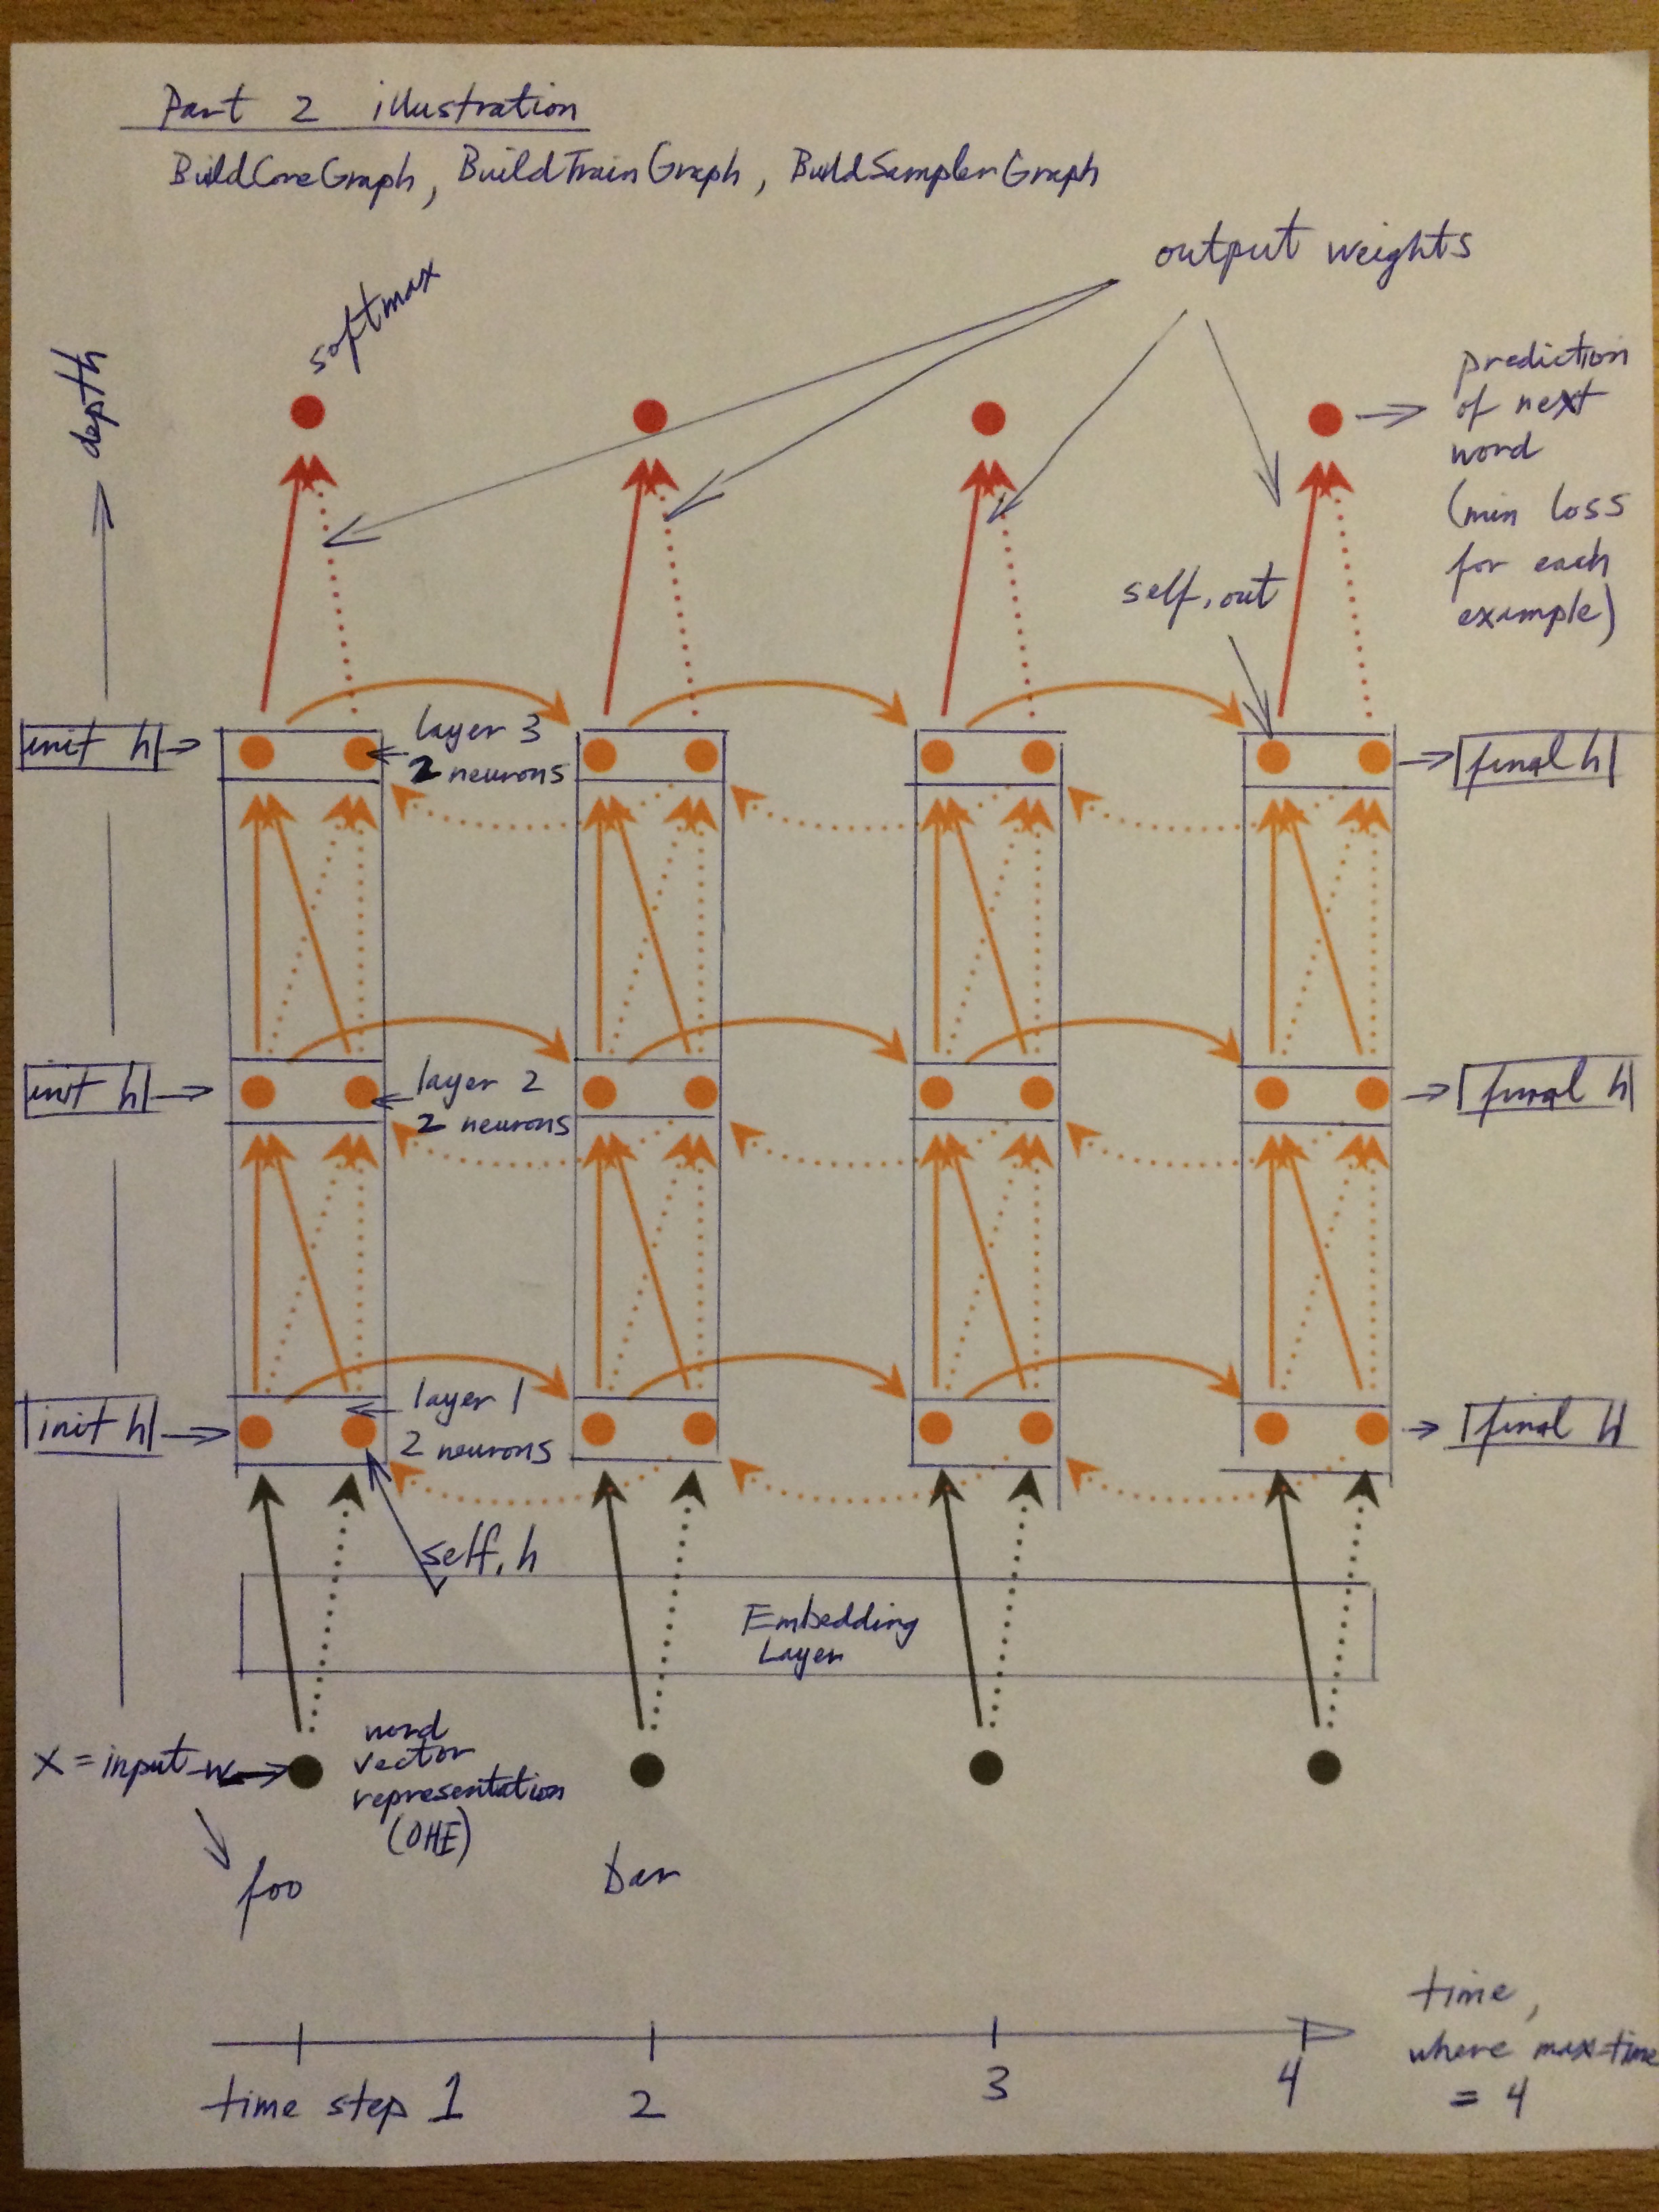 Part 2 illustration
BuildCoreGraph, BuildTrainGraph, BuildSamplerGraph
output weights
softmax
depth
prediction
of next
word
(min loss
for each
example)
self.out
init h
layer 3
2 neurons
final h
init h
layer 2
2 neurons
final h
init h
layer 1
2 neurons
final h
self.h
Embedding
Layer
x = input_w
word
vector
representation
(OHE)
foo
bar
time,
where max-time
= 4
time step 1
2
3
4